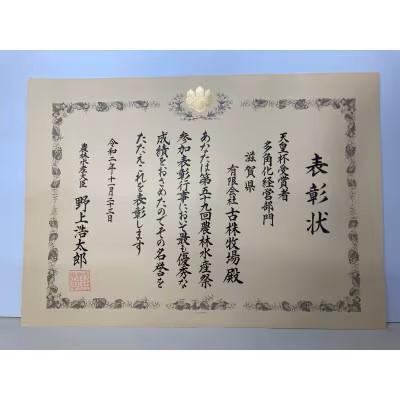 表彰状
天皇杯受賞者
多角化経営部門
滋賀県
有限会社古株牧場殿
あなたは第五十九回農林水産祭
参加表彰行事において最も優秀な
成績をおさめたのでその名誉を
たたえこれを表彰します
令和二年十一月二十三日
農林水産大臣 野上浩太郎